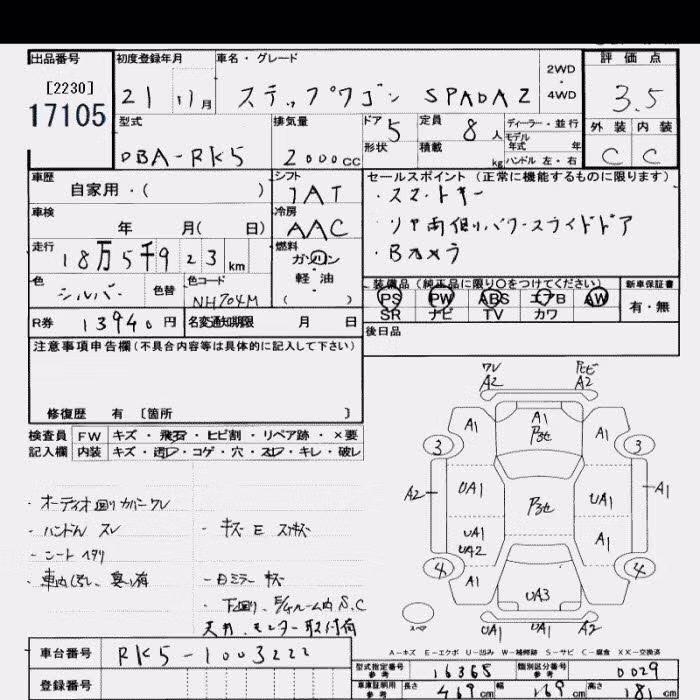 出品番号 初度登録年月 車名・グレード 評価点
[2230]
17105
21 11月 ステップワゴン SPADA Z 2WD・4WD 3.5
型式 排気量 ドア 5 定員 8人 ディーラー・並行 外装 内装
形状 積載 kg モデル年式 年式 ハンドル 左・右
DBA-RK5 2000cc C C
車歴 シフト セールスポイント(正常に機能するものに限ります)
自家用・( ) IAT ・スマートキー
車検 冷房 ・リア両側パワースライドドア
年 月( 日) AAC ・Bカメラ
走行 燃料
18万5千923km ガソリン
軽油
( )
色 シルバー 色替 色コード NH704M 装備品(純正品に限り〇をつけてください) 新車保証書
PS PW ABS エアB AW 有・無
SR ナビ TV カワ
R券 13940円 名変通知期限 月 日 後日品
注意事項申告欄(不具合内容等は具体的に記入して下さい)
修復歴 有 [箇所 ]
検査員 FW キズ・飛石・ヒビ割・リペア跡・×要
記入欄 内装 キズ・透レ・コゲ・穴・スレ・キレ・破レ
・オーディオ回りカバーワレ
・ハンドル スレ ・キズ E スリキズ
・シート ヘタリ
・車内汚レ、臭い有 ・Dミラー キズ
・下回り、E/gルーム内 S.C
天井、モニター取付有
ワレ A2 A2
A1 A1 A1
3 3
A2 UA1 UA1 A1
UA1 UA2 A1
4 A1 4
UA3
スペア UA1 UA1 A2
A-キズ E-エクボ U-凹み W-補修跡 S-サビ C-腐食 XX-交換済
車台番号 RK5-1003222
型式指定番号 参考 16368 類別区分番号 参考 0029
登録番号
車庫証明用 参考 長さ 469cm 幅 169cm 高さ 181cm